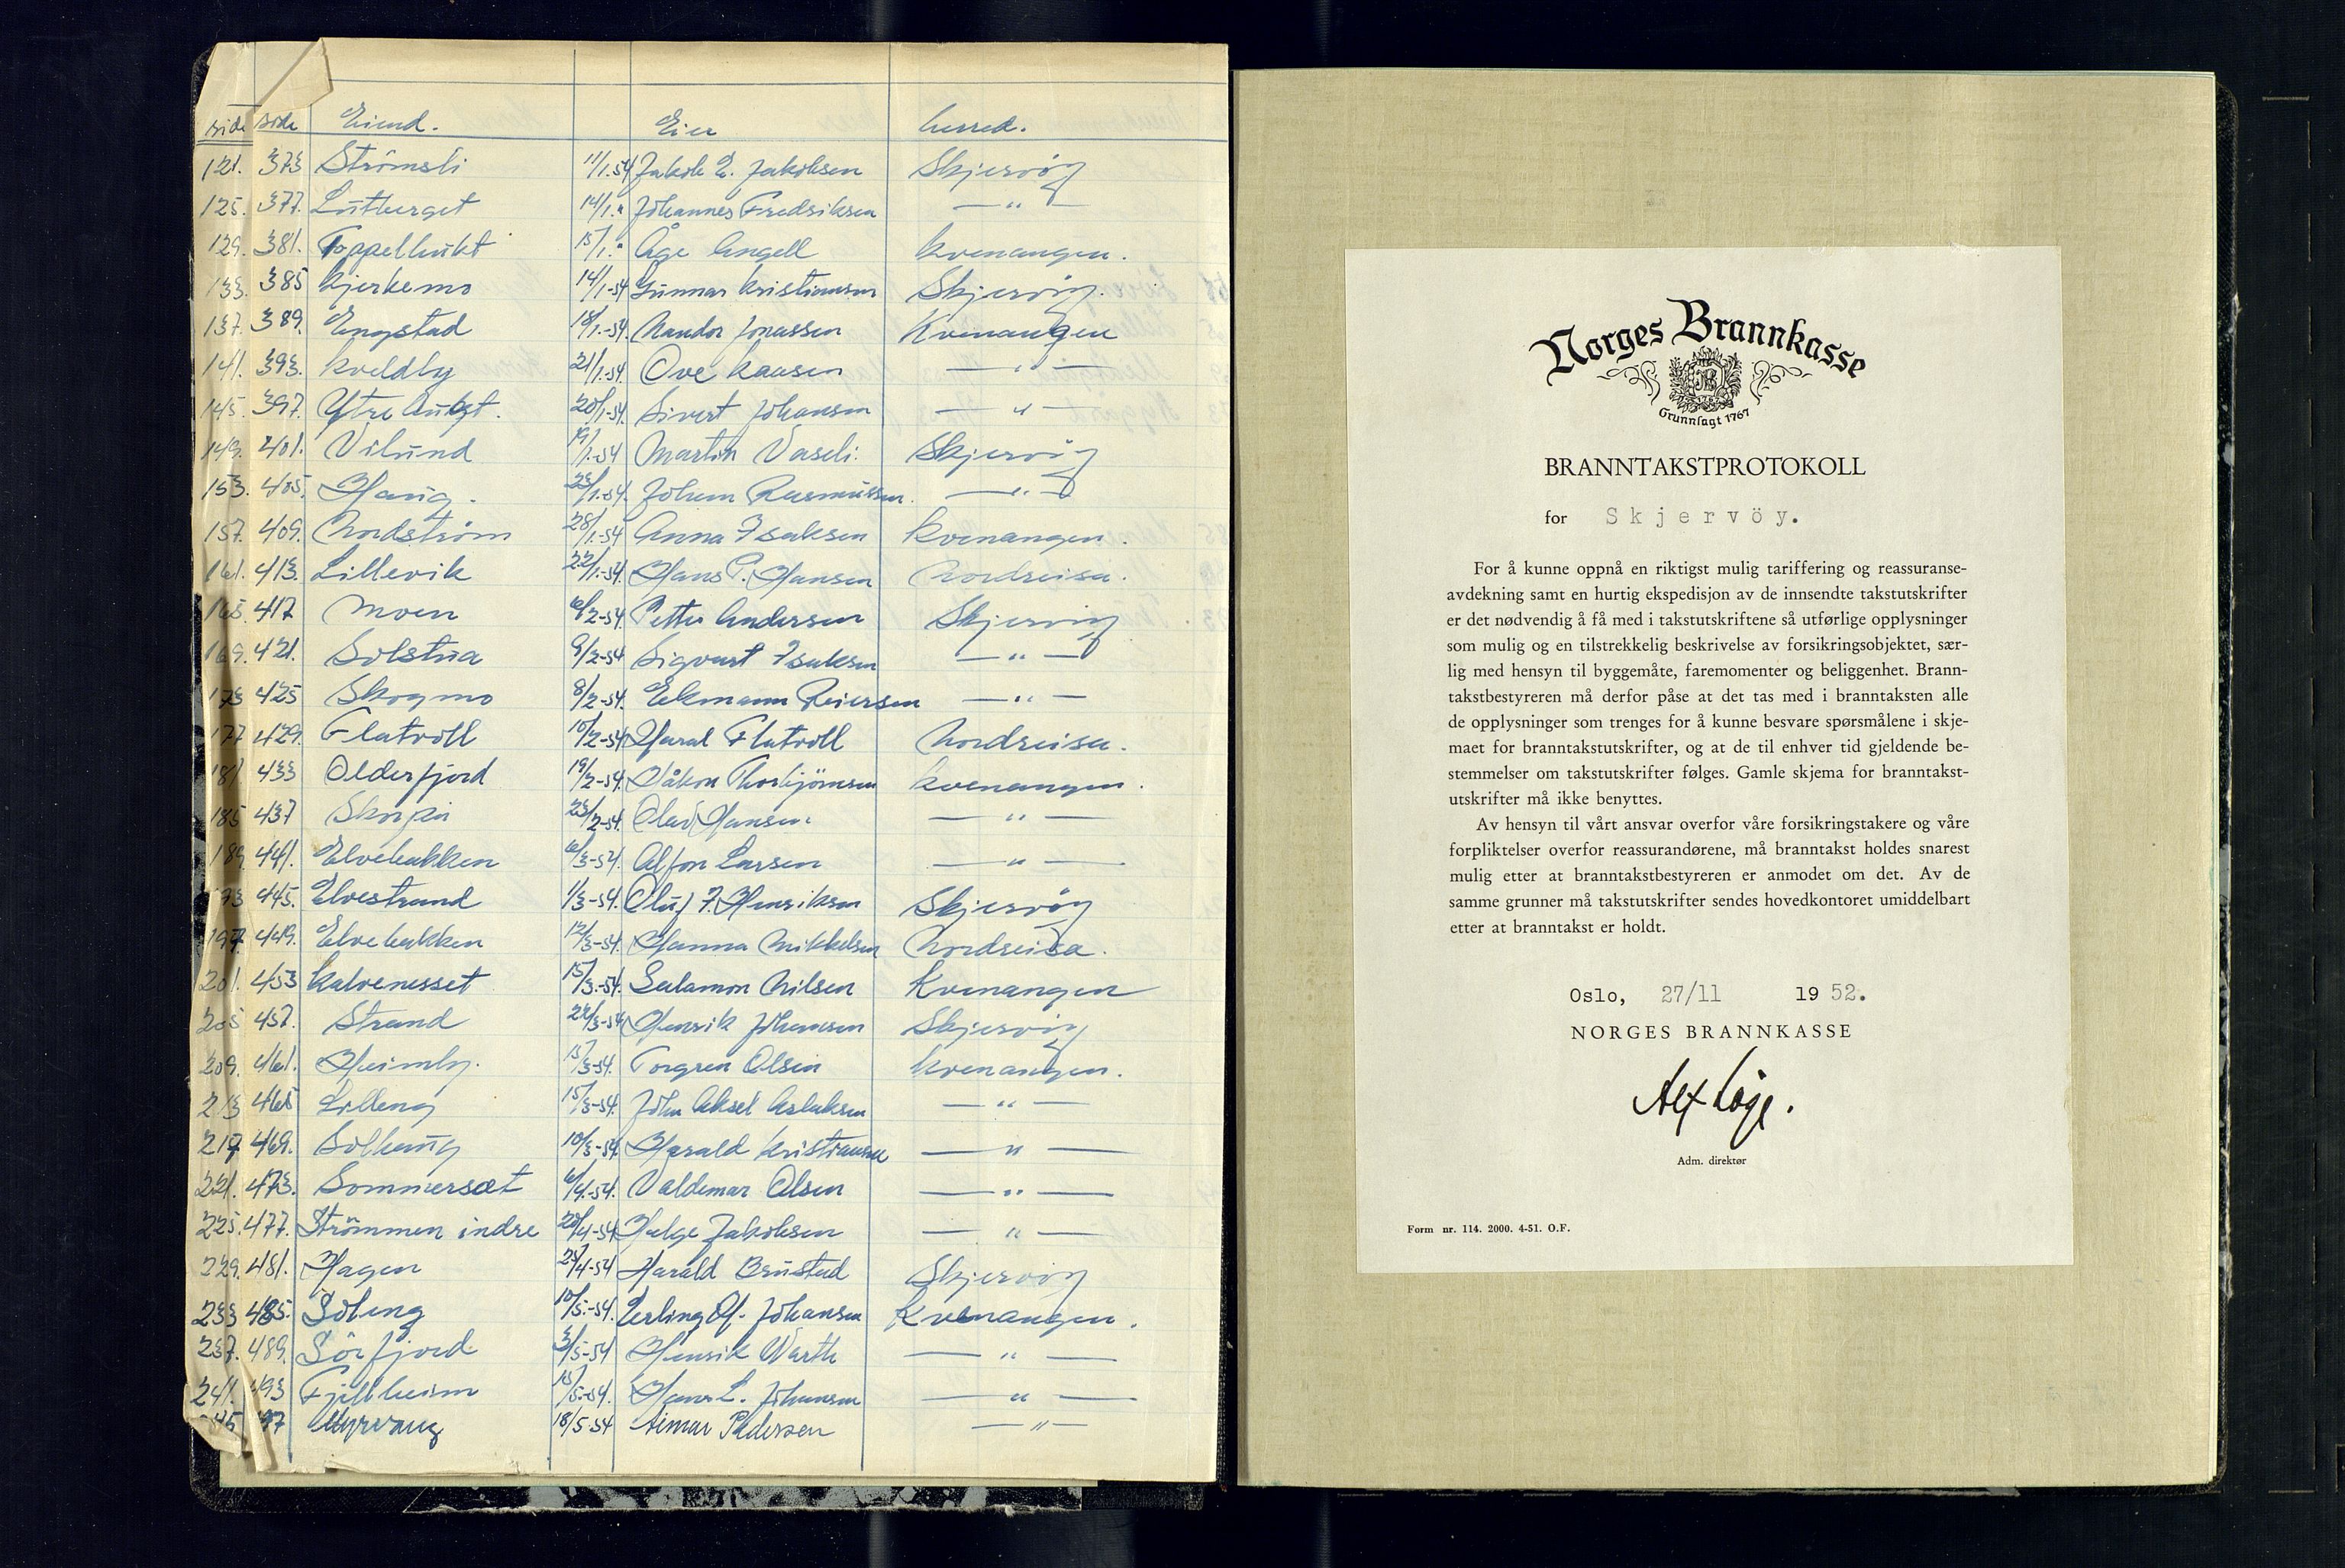 side side Eiend. Eier herred.
121. 373 Strömsli 11/1.54 Jakob E. Jakobsen Skjervöy
125. 377. Lutberget 14/1." Johannes Fredriksen — " —
129. 381. Toppelbukt 15/1." Åge Angell kvenangen.
133. 385 Kjerkemo 14/1-54 Gunnar Kristiansen Skjervöy.
137. 389. Engstad 18/1.-54. Nandor Jonassen Kvenangen
141. 393. Kveldby 21/1-54. Ove Hansen — " —
145. 397. Ytre 20/1-54. Sivert Johansen — " —
149. 401. Vilund 19/1-54 Martin Vaseli. Skjervöy
153. 405. Haug. 25/1-54. Johan Rasmussen. — " —
157. 409. Nordström 28/1.-54 Anna Isaksen kvenangen.
161. 413. Lillevik 22/1.-54. Hans P. Hansen Nordreisa.
165. 417 Moen 6/2-54. Petter Andersen Skjervöy
169. 421. Solstua 9/2-54 Sigvart Isaksen — " —
173 425 Skogmo 8/2-54. Ekmann Reiersen — " —
177 429. Flatvoll 10/2-54 Haral Flatvoll Nordreisa.
181. 433 Olderfjord 19/2-54. Håkon Thorbjörnsen kvenangen.
185 437 23/2-54. Olav Hansen. — " —
189 441. Elvebakken 6/3-54. Alfon Larsen — " —
193 445. Elvestrand 1/3-54. Oluf J. Henriksen Skjervöy
197 449. Elvebakken 12/3-54. Hanna Mikkelsen Nordreisa.
201. 453 Kalvenesset 15/3.-54. Salamon Nilsen Kvenangen
205 457. Strand 24/3-54 Henrik Johansen Skjervöy
209. 461. Heimly. 15/3-54. Torgren Olsen kvenangen.
213 465 Lilleng 15/3-54. John Aksel Aslaksen — " —
217 469. Solhaug 10/3-54. Harald Kristiansen — " —
221. 473. Sommersæt 6/4.-54. Valdemar Olsen — " —
225. 477. Strömmen indre 20/4-54 Helge Jakobsen — " —
229. 481. Hagen 25/4-54 Harald Brustad Skjervöy
233 485. Soleng 10/5.-54. Erling Johansen Kvenangen.
237. 489. Sörfjord 3/5-54 Henrik Warth — " —
241. 493 Fjellheim 15/5.-54. Hans L. Johansen — " —
245 497 Myrvang 18/5-54 Aimar Pedersen — " —
Norges Brannkasse
Grunnlagt 1767
BRANNTAKSTPROTOKOLL
for Skjervöy.
For å kunne oppnå en riktigst mulig tariffering og reassuranse-
avdekning samt en hurtig ekspedisjon av de innsendte takstutskrifter
er det nødvendig å få med i takstutskriftene så utførlige opplysninger
som mulig og en tilstrekkelig beskrivelse av forsikringsobjektet, sær-
lig med hensyn til byggemåte, faremomenter og beliggenhet. Brann-
takstbestyreren må derfor påse at det tas med i branntaksten alle
de opplysninger som trenges for å kunne besvare spørsmålene i skje-
maet for branntakstutskrifter, og at de til enhver tid gjeldende be-
stemmelser om takstutskrifter følges. Gamle skjema for branntakst-
utskrifter må ikke benyttes.
Av hensyn til vårt ansvar overfor våre forsikringstakere og våre
forpliktelser overfor reassurandørene, må branntakst holdes snarest
mulig etter at branntakstbestyreren er anmodet om det. Av de
samme grunner må takstutskrifter sendes hovedkontoret umiddelbart
etter at branntakst er holdt.
Oslo, 27/11 19 52.
NORGES BRANNKASSE
Alex Løge.
Adm. direktør
Form nr. 114. 2000. 4-51. O.F.